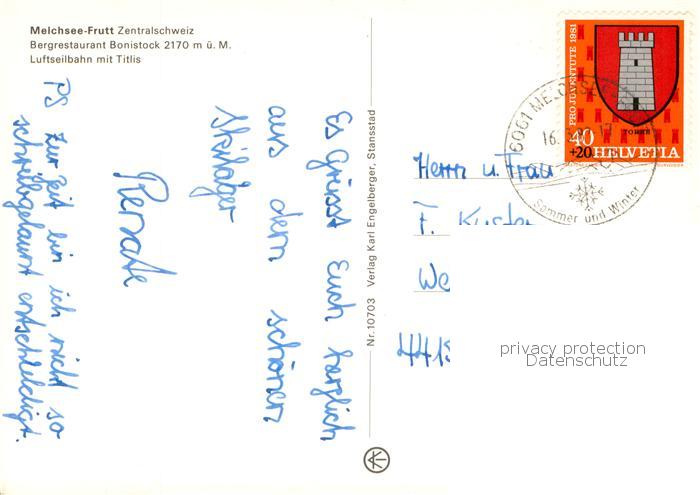 Melchsee-Frutt Zentralschweiz
Bergrestaurant Bonistock 2170 m ü. M.
Luftseilbahn mit Titlis
Es Grüsst Euch herzlich
aus dem schönen
Skilager
Renate
PS Zur Zeit bin ich nicht so
schreibgelaunt entschuldigt.
Nr. 10703 Verlag Karl Engelberger, Stansstad
PRO JUVENTUTE 1981
TORRE
40
+20 HELVETIA
6061 MELCHSEE
16.
Sommer und Winter
Herrn u. Frau
F.
We
privacy protection
Datenschutz